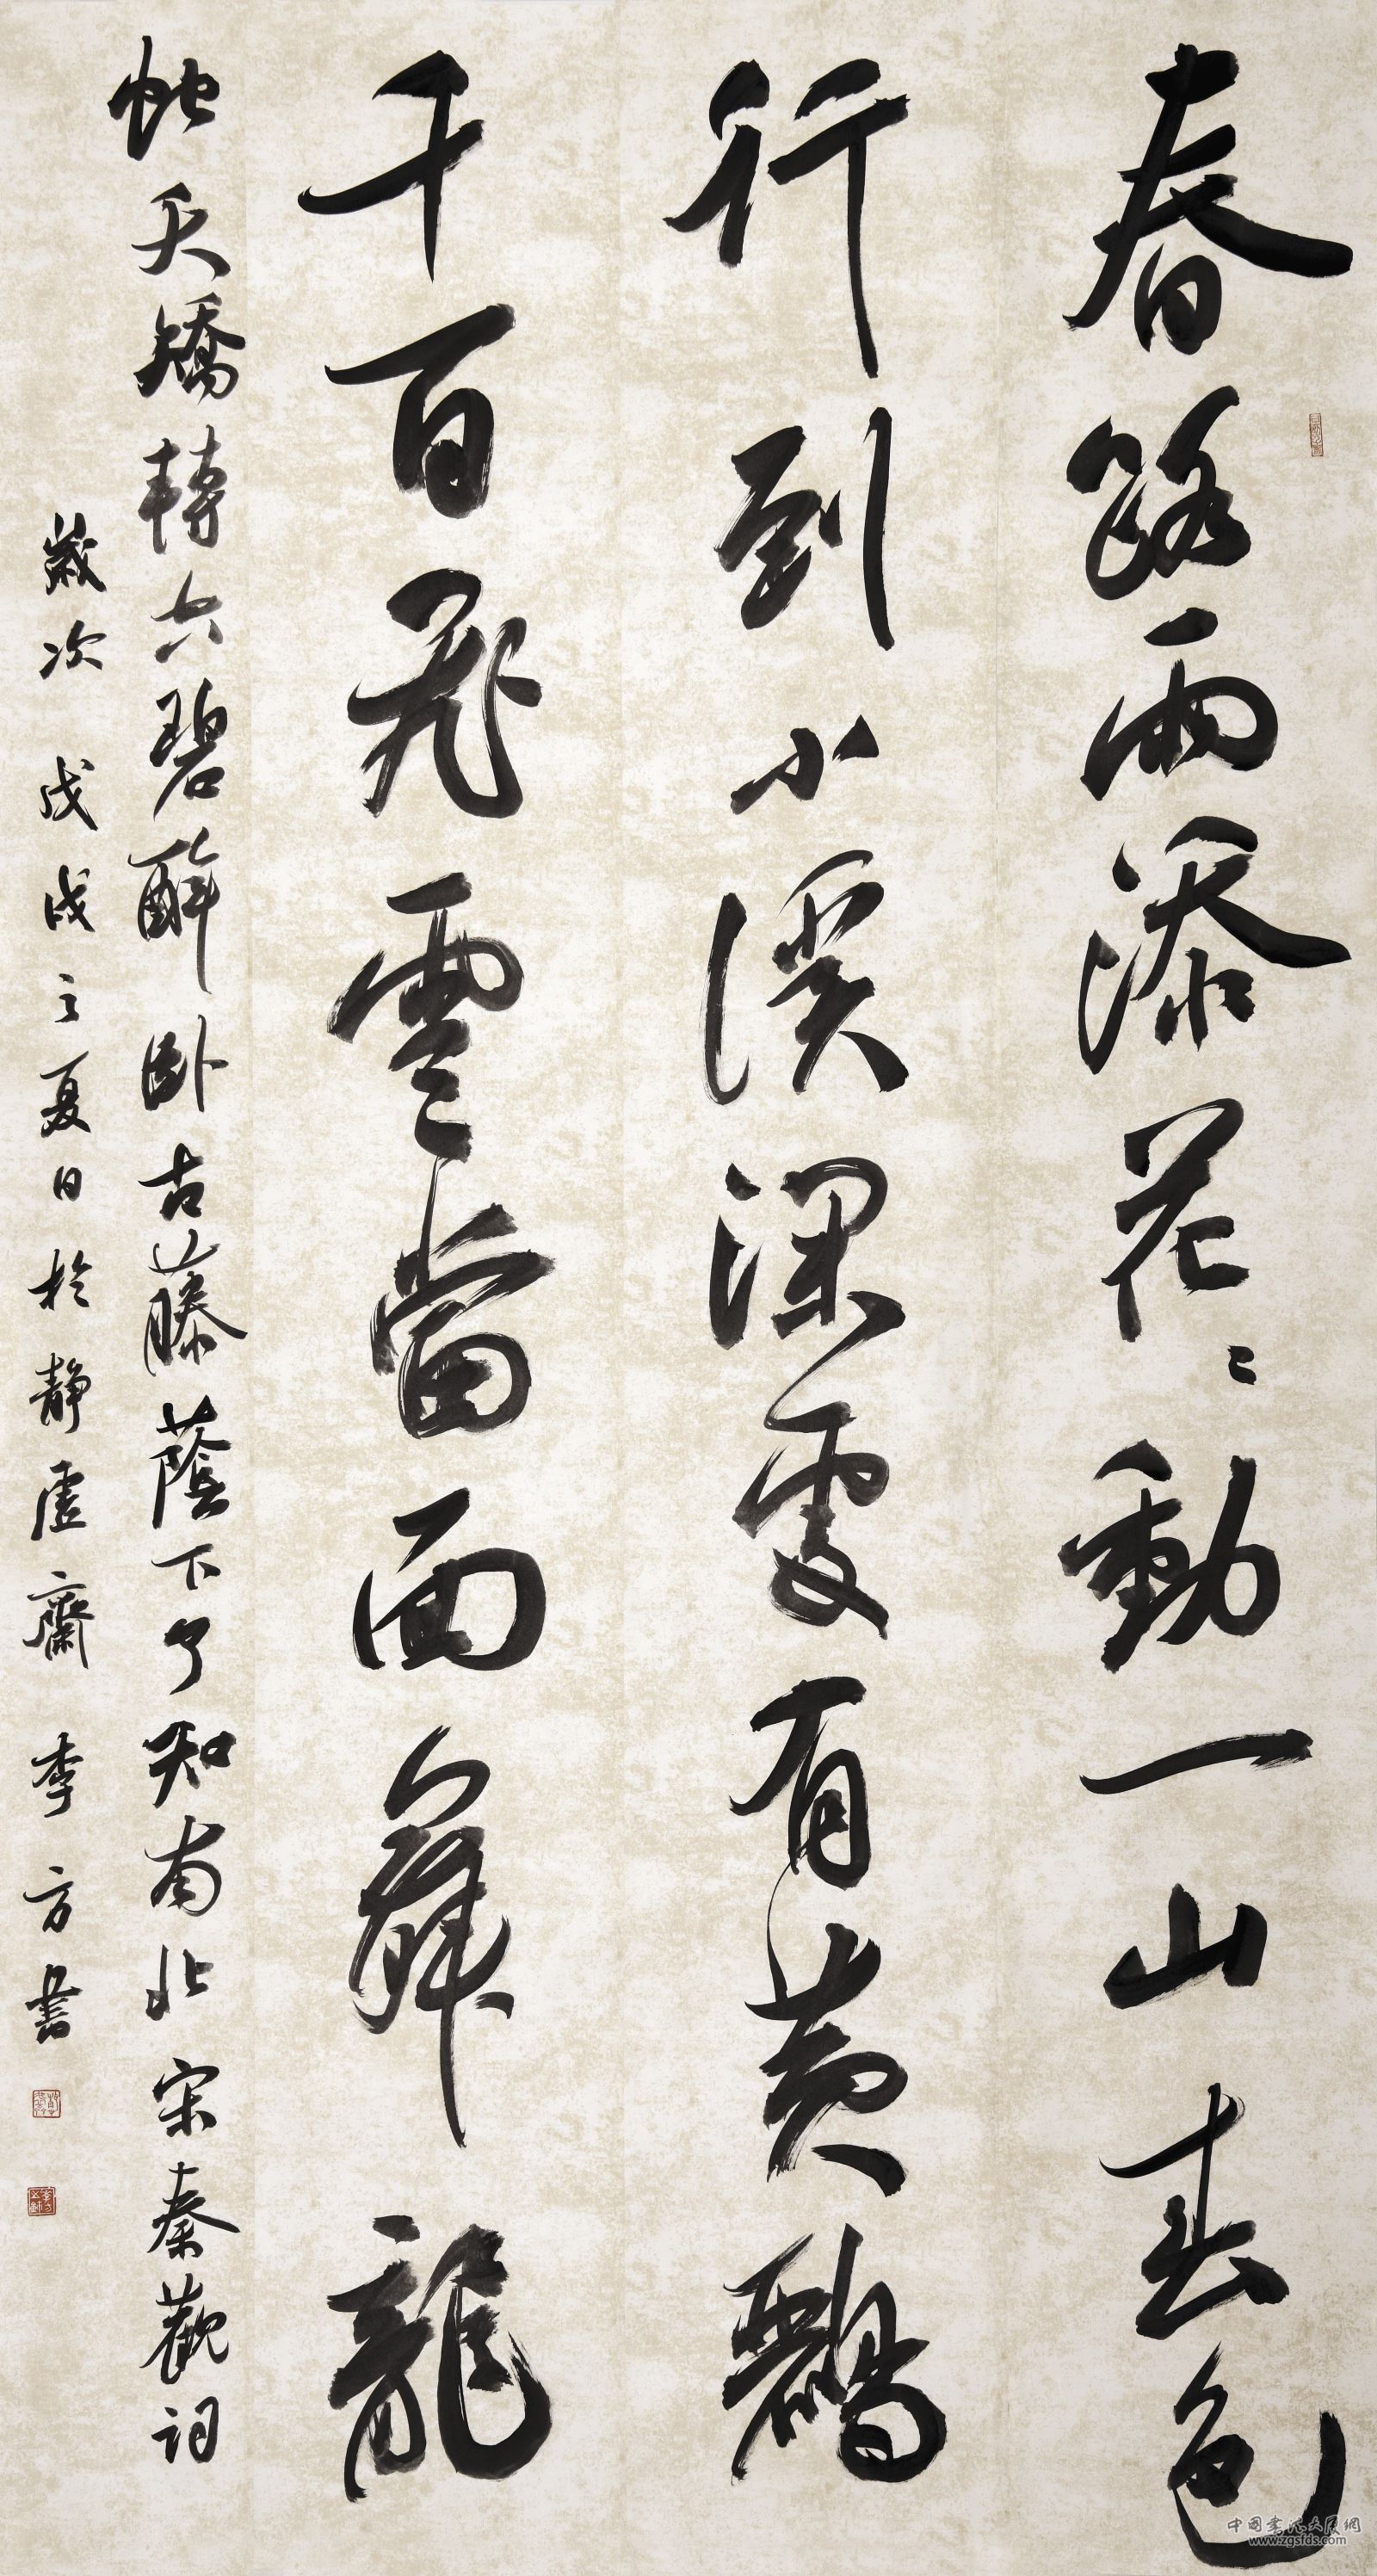 春路雨添花〻動一山春色
行到小溪深處有黃鸝
千百飛雲當面舞龍
蛇夭矯轉空碧醉卧古藤蔭下了不知南北宋秦觀詞
歲次戊戌之夏日於靜虛齋李方書
中国书法大展網
www.zgsfds.com